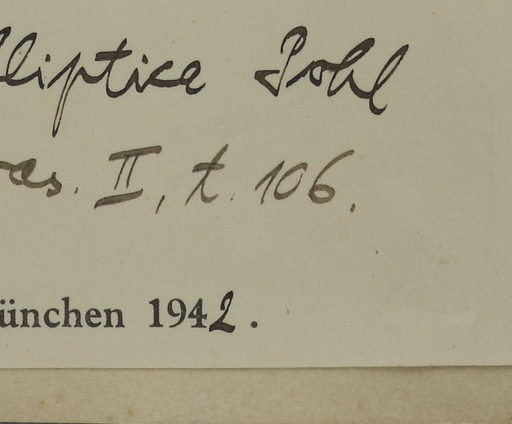 lliptica Pohl
ras. II, t. 106.
ünchen 1942.